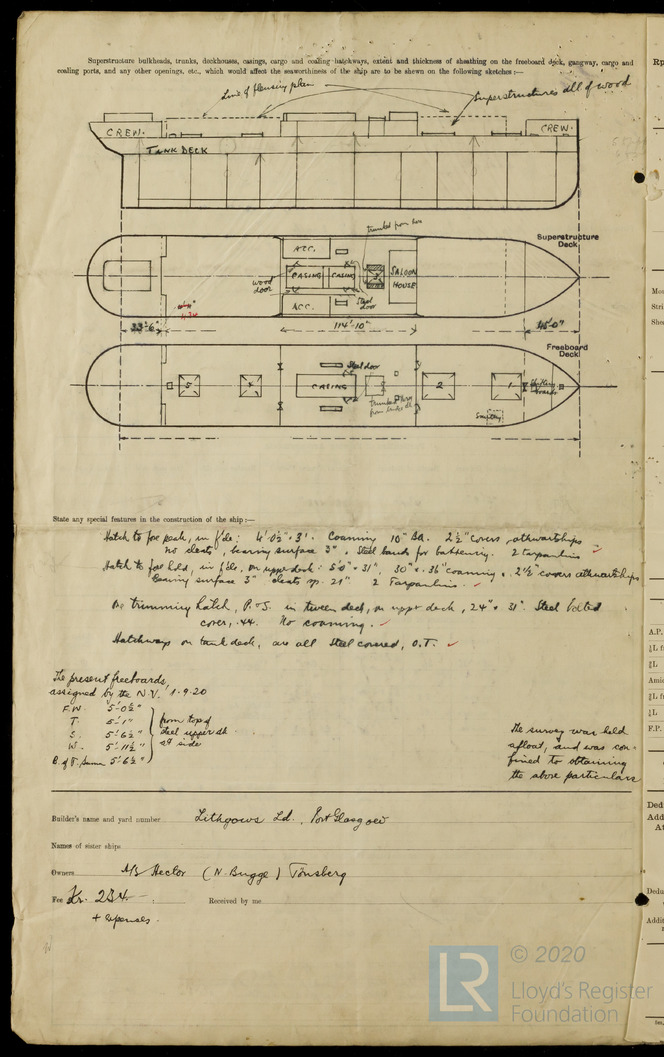 Superstructure bulkheads, trunks, deckhouses, casings, cargo and coaling hatchways, extent and thickness of sheathing on the freeboard deck, gangway, cargo and
coaling ports, and any other openings, etc., which would affect the seaworthiness of the ship are to be shewn on the following sketches:—
Line of flensing plan
Superstructures all of wood
CREW.
CREW.
TANK DECK
Superstructure
Deck
trunked from
ACC.
wood
door
CASING
CASING
SALOON
HOUSE
Steel
door
ACC.
33'-6"
114'-10"
45'-0"
Freeboard
Deck
Steel door
5
4
CASING
2
1
State any special features in the construction of the ship:—
Hatch to fore peak, in f'cle: 4'0½" × 3'. Coaming 10" BA. 2½" covers athwartships
No cleats, bearing surface 3". Steel bands for battening. 2 tarpaulins
Hatch to fore hold, in f'cle, on upper deck: 5'0" × 31". 30" × .36" coaming. 2½" covers athwartships
bearing surface 3" cleats sp. 21" 2 Tarpaulins.
One trimming hatch, P. & S. in tween deck, on upper deck, 24" × 31". Steel bolted
cover, .44. No coaming.
Hatchways on tank deck, are all Steel covered, O.T.
The present freeboards,
assigned by the N.V. 1-9-20
F.W. 5'-0½"
T. 5'-1"
S. 5'-6½"
W. 5'-11½"
5'-6½"
from top of
steel upper dk.
at side
The survey was held
afloat, and was con-
fined to obtaining
the above particulars
Builder's name and yard number Lithgows Ld., Port Glasgow
Names of sister ships
Owners A/S Hector (N. Bugge) Tönsberg
Fee Kr. 234.—
Received by me
+ expenses.
© 2020
LR
Lloyd's Register
Foundation